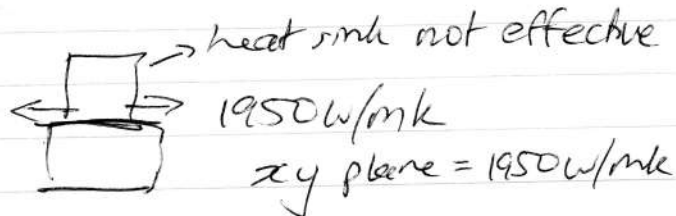 heat sink not effective
1950 W/mk
xy plane = 1950 W/mk